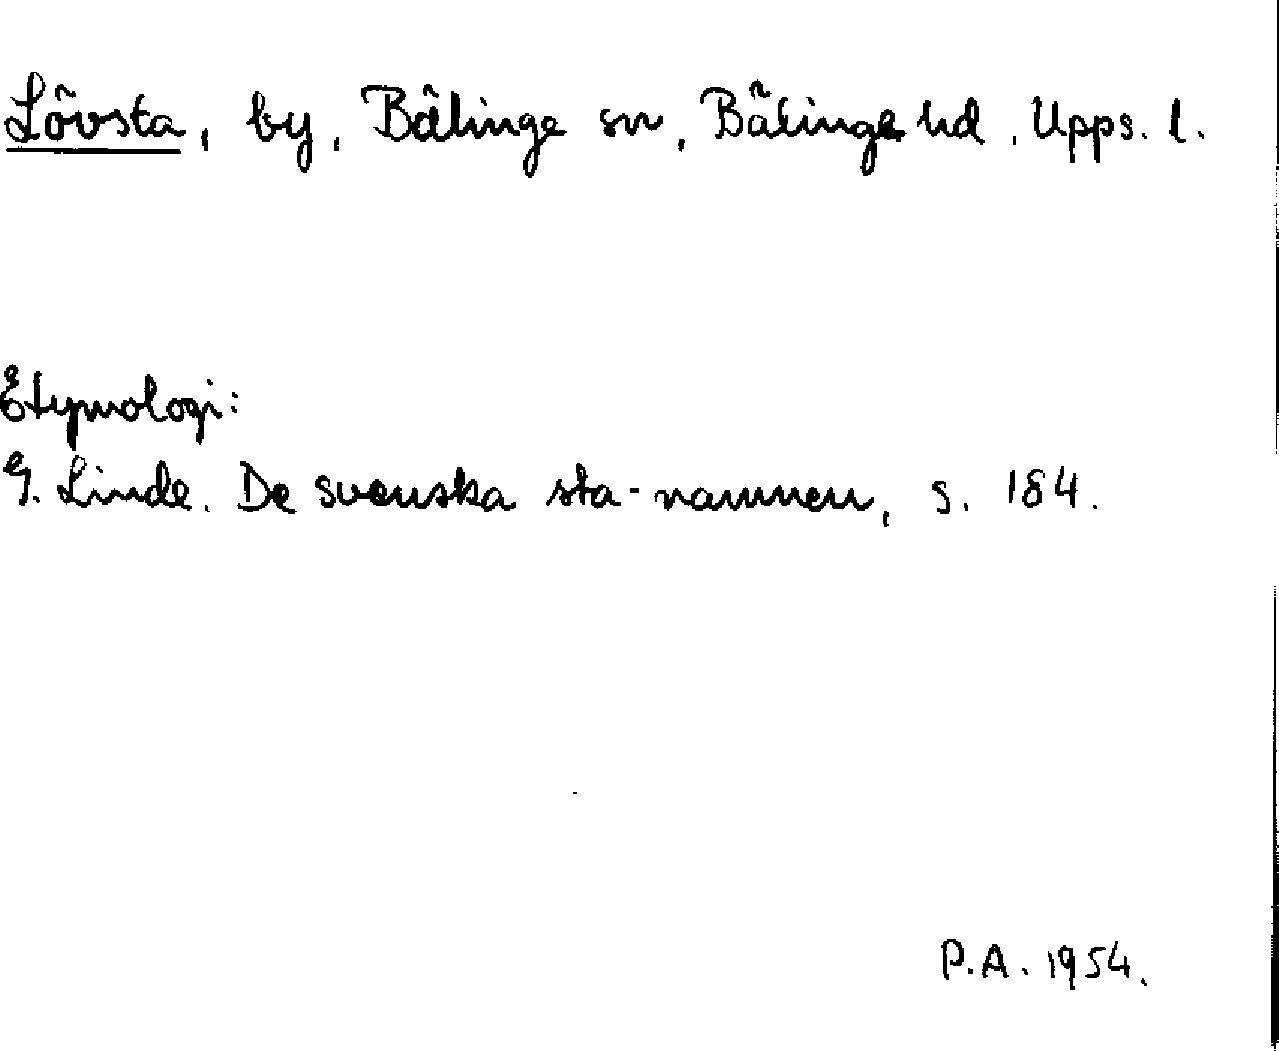 Lövsta, by, Bälinge sn, Bälinge hd, Upps. l.
Etymologi:
G. Linde. De svenska sta-namnen, s. 184.
P.A. 1954.